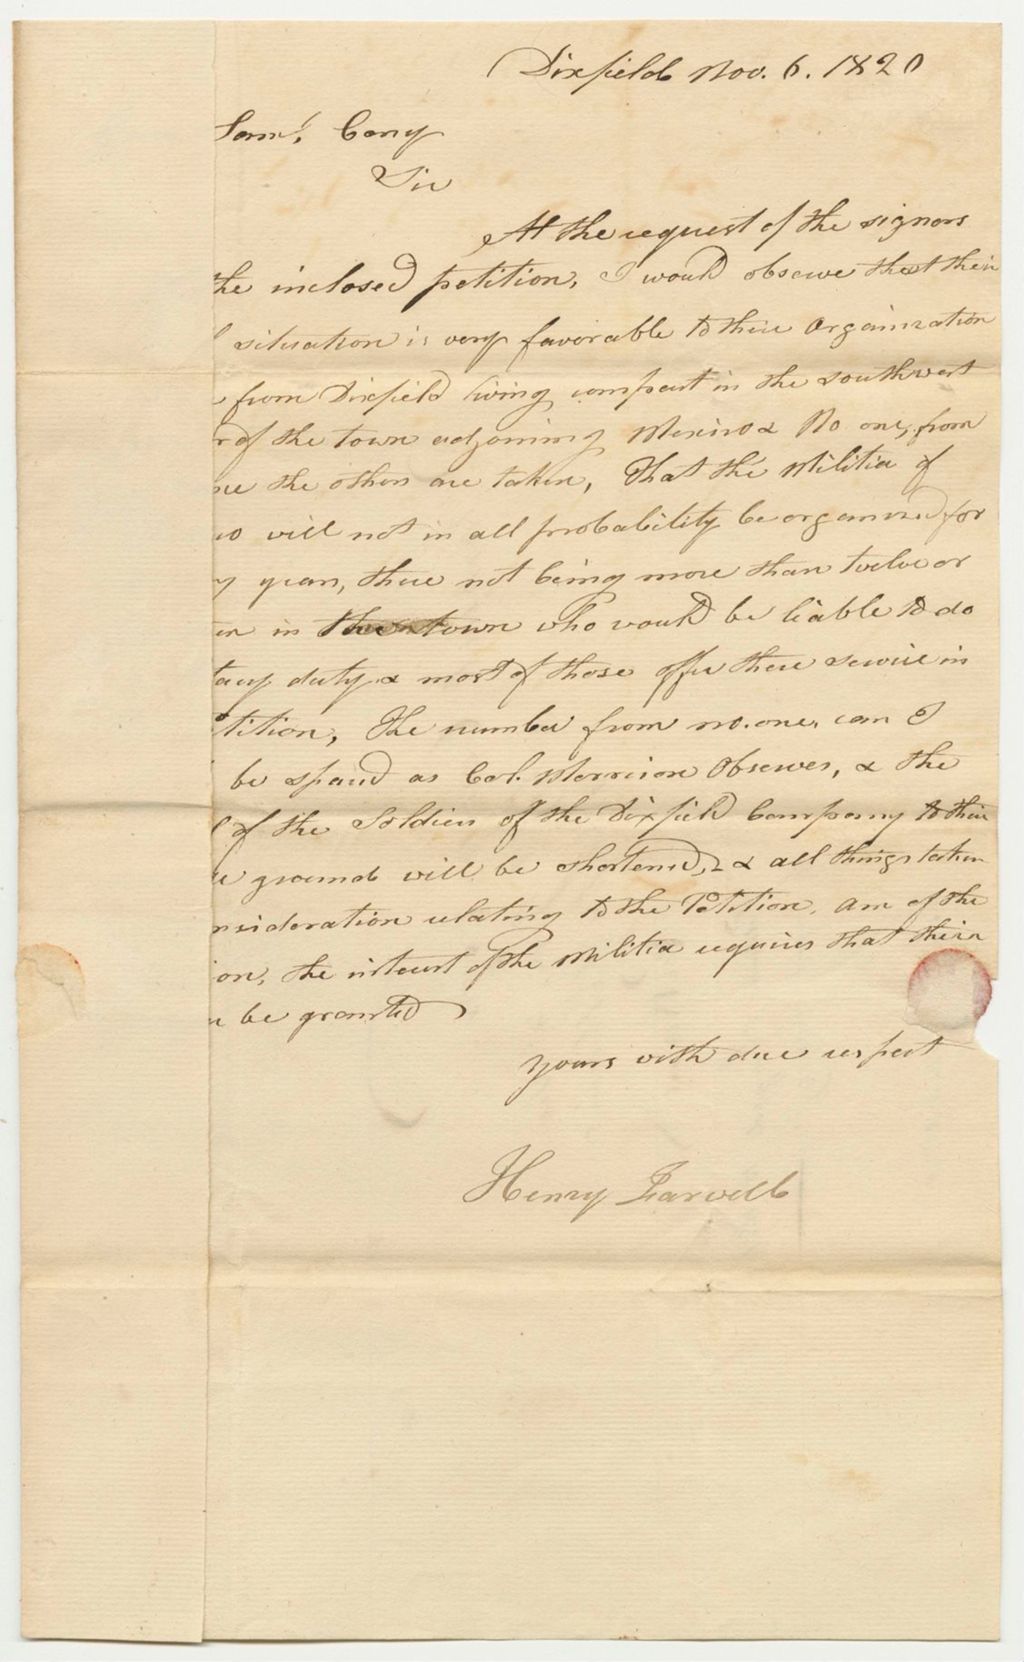 Dixfield Nov. 6. 1820
Saml. Cony
Sir
At the request of the signors
the inclosed petition, I would observe that their
situation is very favorable to their Organization
from Dixfield living compact in the southwest
r of the town adjoining Mexico & No one, from
the others are taken, That the Militia of
will not in all probability be organized for
y years, there not being more than twelve or
in town who would be liable to do
tary duty & most of those offer there service in
tition, The number from no. one, can I
be spaird as Col. Morrison Observes, & the
of the Soldiers of the Dixfield Company to their
ground will be shortened, & all things taken
nsideration relating to the Petition, am of the
ion, the interest of the Militia requires that their
n be granted
yours with due respect
Henry Farwell